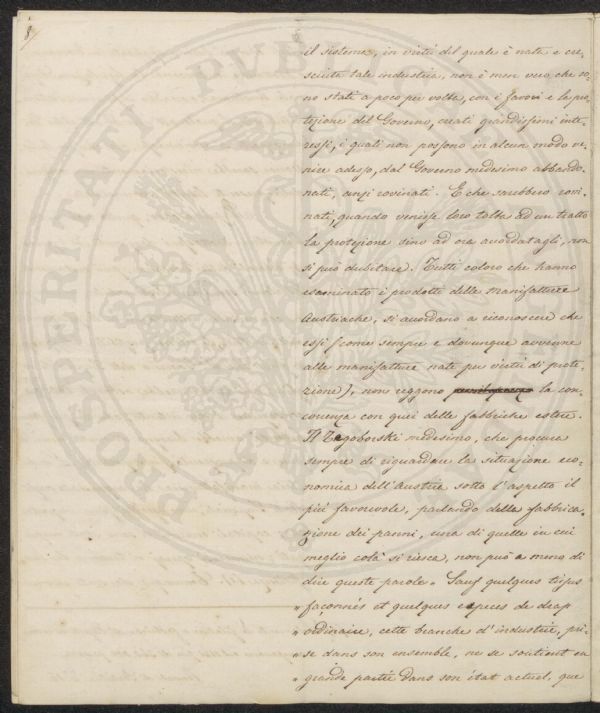 8
il sistema, in virtù del quale è nata e cre-
sciuta tale industria, non è men vero, che so-
no stati a poco per volta, con i favori e la pro-
tezione del Governo, creati grandissimi inte-
ressi, i quali non possono in alcun modo ve-
nire adesso, dal Governo medesimo abbando-
nati, anzi rovinati. E che sarebbero rovi-
nati, quando venisse loro tolta ad un tratto
la protezione sino ad ora accordatagli, non
si può dubitare. Tutti coloro che hanno
esaminato i prodotti delle manifatture
Austriache, si accordano a riconoscere che
essi (come sempre e dovunque avviene
alle manifatture nate per virtù di prote-
zione), non reggono la con-
correnza con quei delle fabbriche estere.
Il Zegoborski medesimo, che procura
sempre di riguardare la situazione eco-
nomica dell'Austria sotto l'aspetto il
più favorevole, parlando della fabbrica-
zione dei panni, una di quelle in cui
meglio colà si riesca, non può a meno di
dire queste parole "Sauf quelques tissus
" façonnés et quelques espèces de drap
" ordinaire, cette branche d'industrie, pri-
" se dans son ensemble, ne se soutient en
" grande partie dans son état actuel, que
PROSPERITATI PVBLI